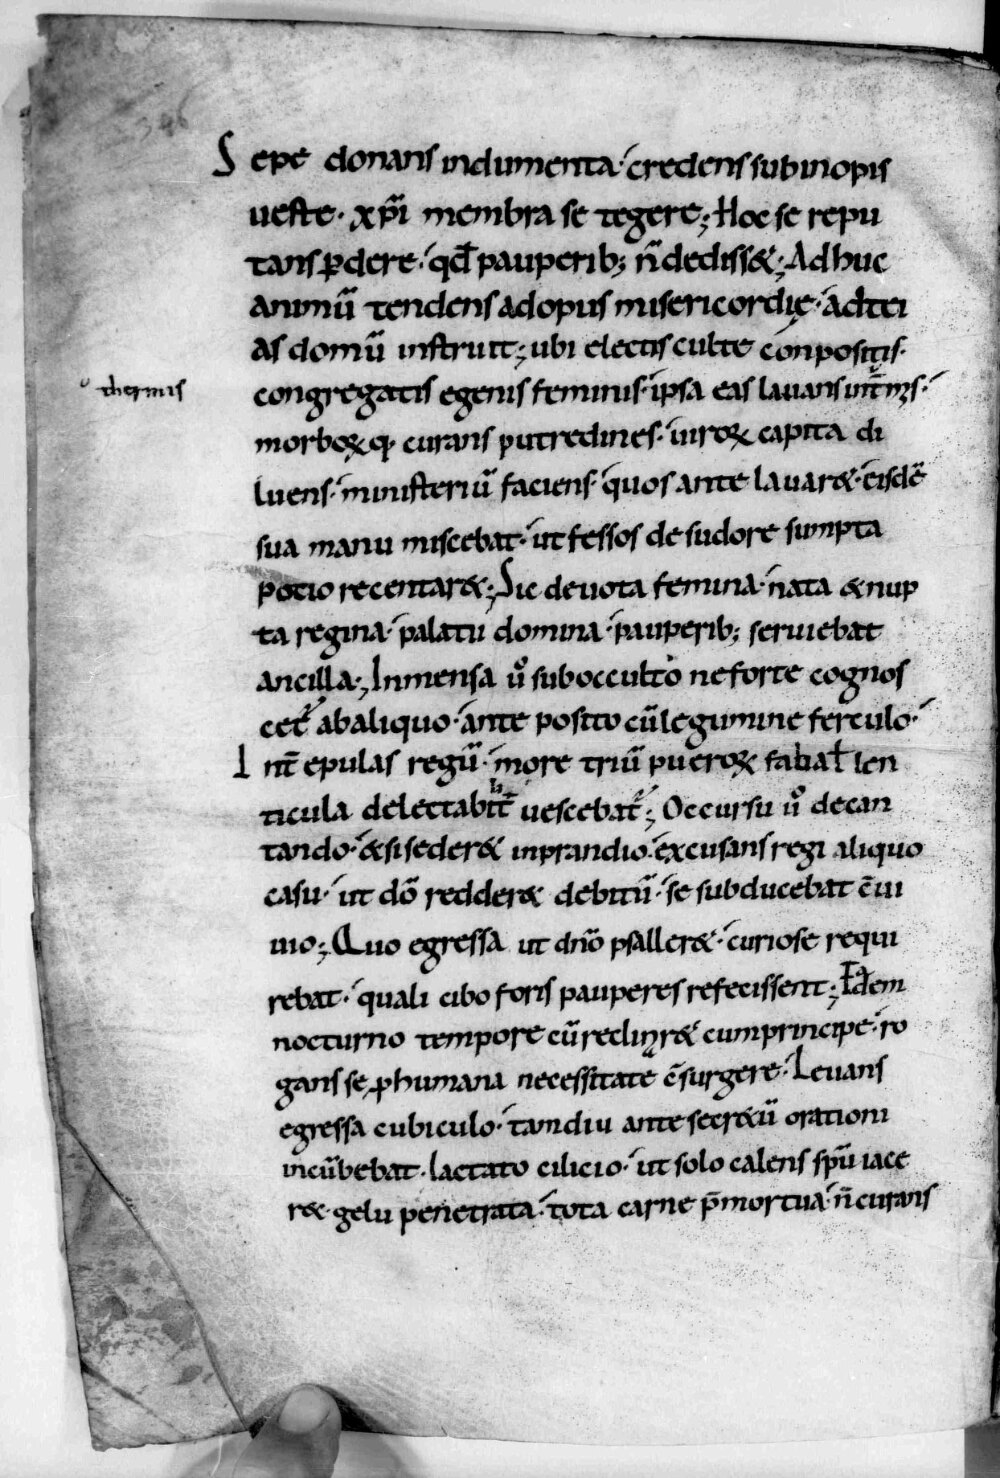 346
Sepe donans indumenta· credens sub inopis
ueste· xp̄i membra se tegere; Hoc se repu
tans ꝑdere· qd̄ pauperib; n̄ dediss&; Adhuc
animū tendens ad opus misericordię· adtei
as domū instruit; ubi electis culte conpositis·
thermis
congregatis egenis feminis· ipsa eas lauans
morboꝝ q· curans putredines· uiroꝝ capita di
luens· ministeriū faciens· quos ante lauar&· eisdē
sua manu miscebat· ut fessos de sudore sumpta
potio recentar&; Sic deuota femina· nata & nup
ta regina· palatii domina· pauperib; seruiebat
ancilla; Inmensa ů sub occulto ne forte cognos
cet̄ ab aliquo· ante posito cū legumine ferculo·
Int̄ epulas regū· more triū pueroꝝ faba ł len
ticula delectabilit̄ uescebat̄; Occursu ů decan
tando· & si seder& in prandio· excusans regi aliquo
casu· ut dō redder& debitū· se subducebat c̄ui
uio; Quo egressa ut dnō psaller&· curiose requi
rebat· quali cibo foris pauperes refecissent; Idem
nocturno tempore cū reclinar& cum principe· ro
gans se ꝓ humana necessitate c̄surgere· Leuans
egressa cubiculo· tamdiu ante secr&ū orationi
incūbebat· iactato cilicio· ut solo calens spū iace
r& gelu penetrata· tota carne p̄mortua· n̄ curans